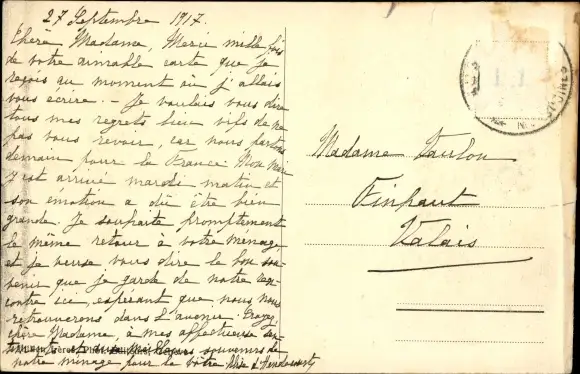 27 Septembre 1917.
Chère Madame, Merci mille fois
de votre aimable carte que je
reçois au moment où j'allais
vous écrire. - Je voulais vous dire
tous mes regrets bien vifs de ne
pas vous revoir, car nous partons
demain pour la France. Mon mari
y est arrivé mardi matin, et
son émotion a dû être bien
grande. Je souhaite promptement
le même retour à votre ménage,
et je veux vous dire le bon sou-
venir que je garde de notre ren-
contre ici, espérant que nous nous
retrouverons dans l'avenir. Croyez
chère Madame à mes affectueux sen-
timents et aux meilleurs souvenirs de
notre ménage pour le vôtre
Madame
Finhaut
Valais